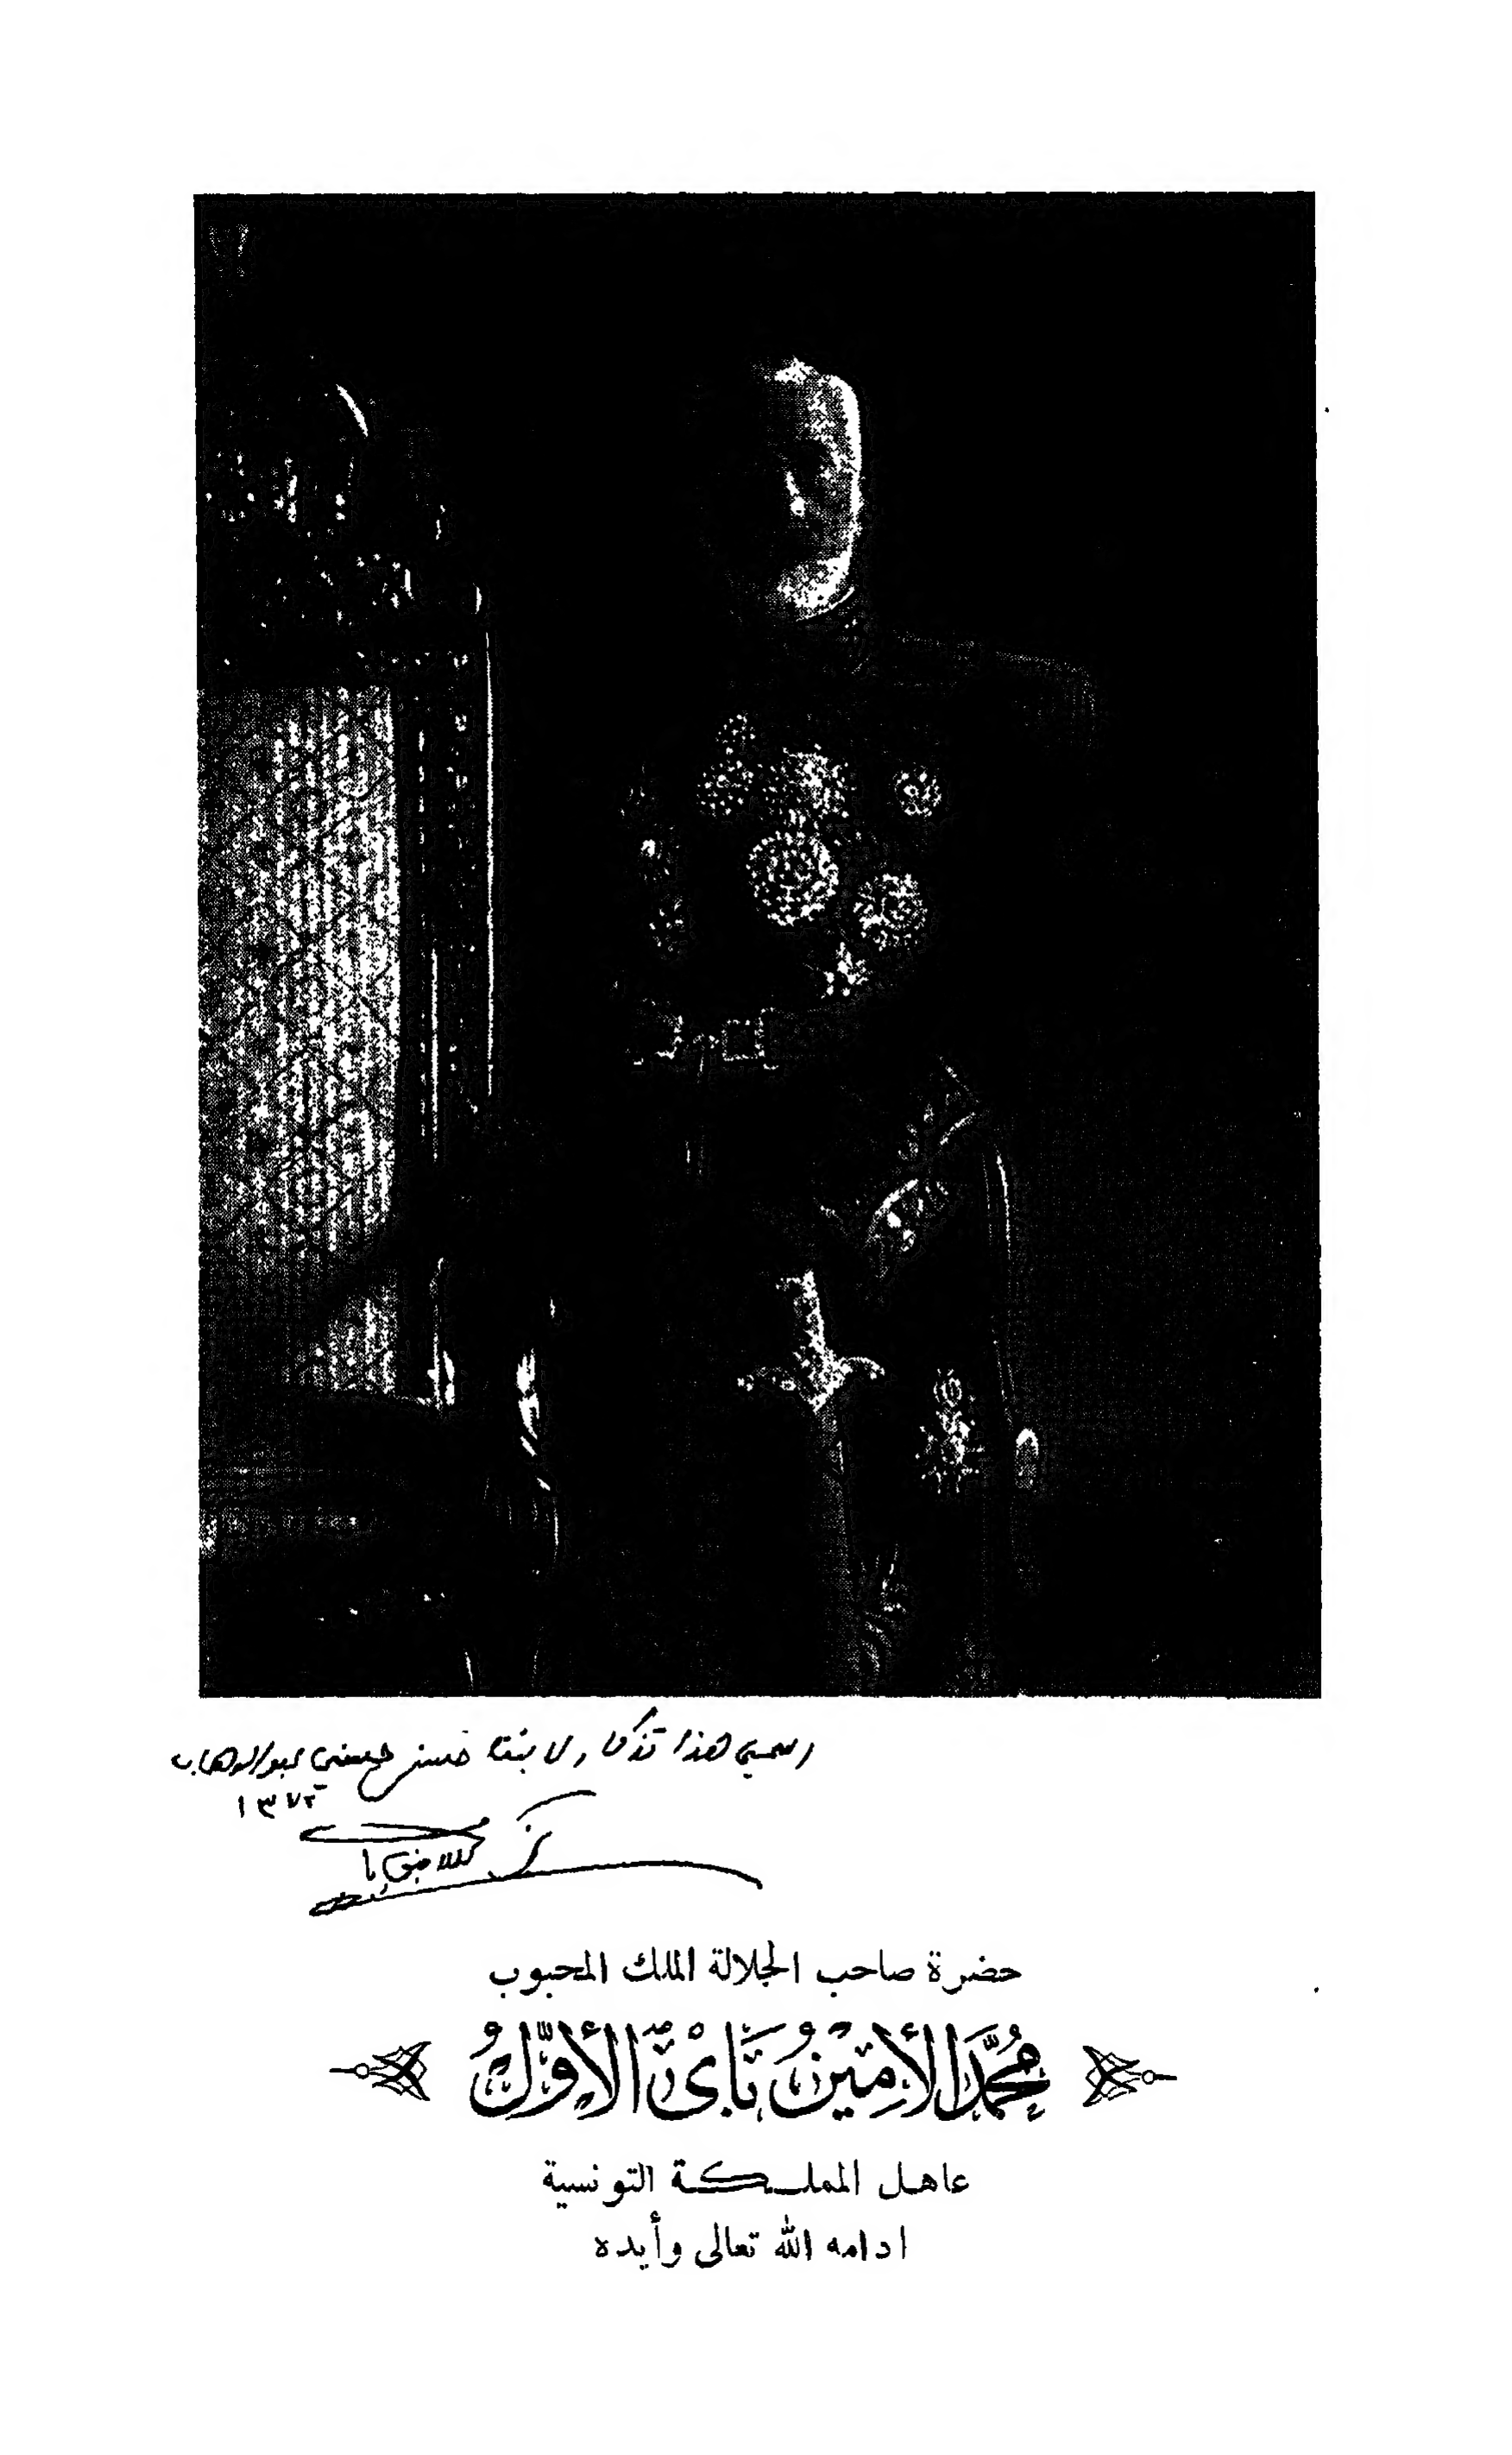 رسمي هذا تذكار لابننا حسن حسني عبد الوهاب
١٣٧٢
محمد الامين باي
حضرة صاحب الجلالة الملك المحبوب
مُحَمَّد الأَمِين بَاي الأَوَّل
عاهل المملكة التونسية
ادامه الله تعالى وأيده